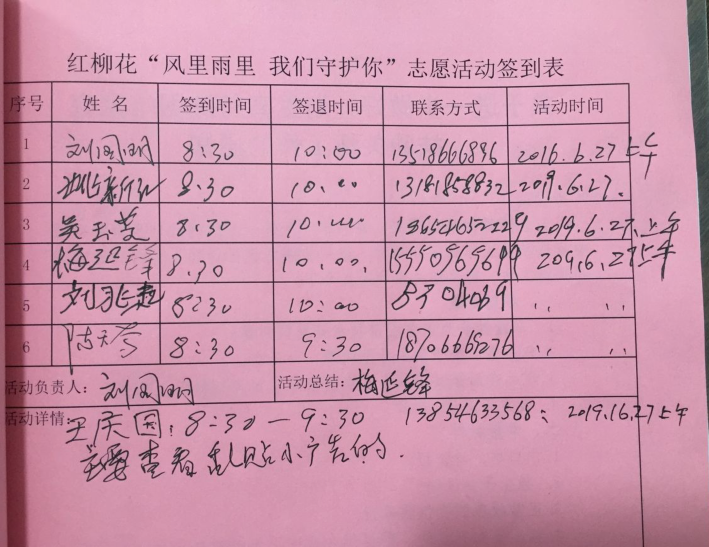 红柳花“风里雨里 我们守护你”志愿活动签到表
序号 姓名 签到时间 签退时间 联系方式 活动时间
1 刘国明 8:30 10:00 13518666896 2016.6.27上午
2 8:30 10.00 13181858832 2019.6.27.
3 吴玉芝 8:30 10.00 2019.6.27.上午
4 梅延锋 8.30 10.00. 209.6.27上午
5 8:30 10:00 8304069 〃 〃
6 陈天芳 8:30 9:30 18706668276 〃 〃
活动负责人: 刘国明 活动总结: 梅延锋
活动详情:
王庆国: 8:30—9:30 13854633568: 2019.16.27上午
主要查看乱贴小广告的.